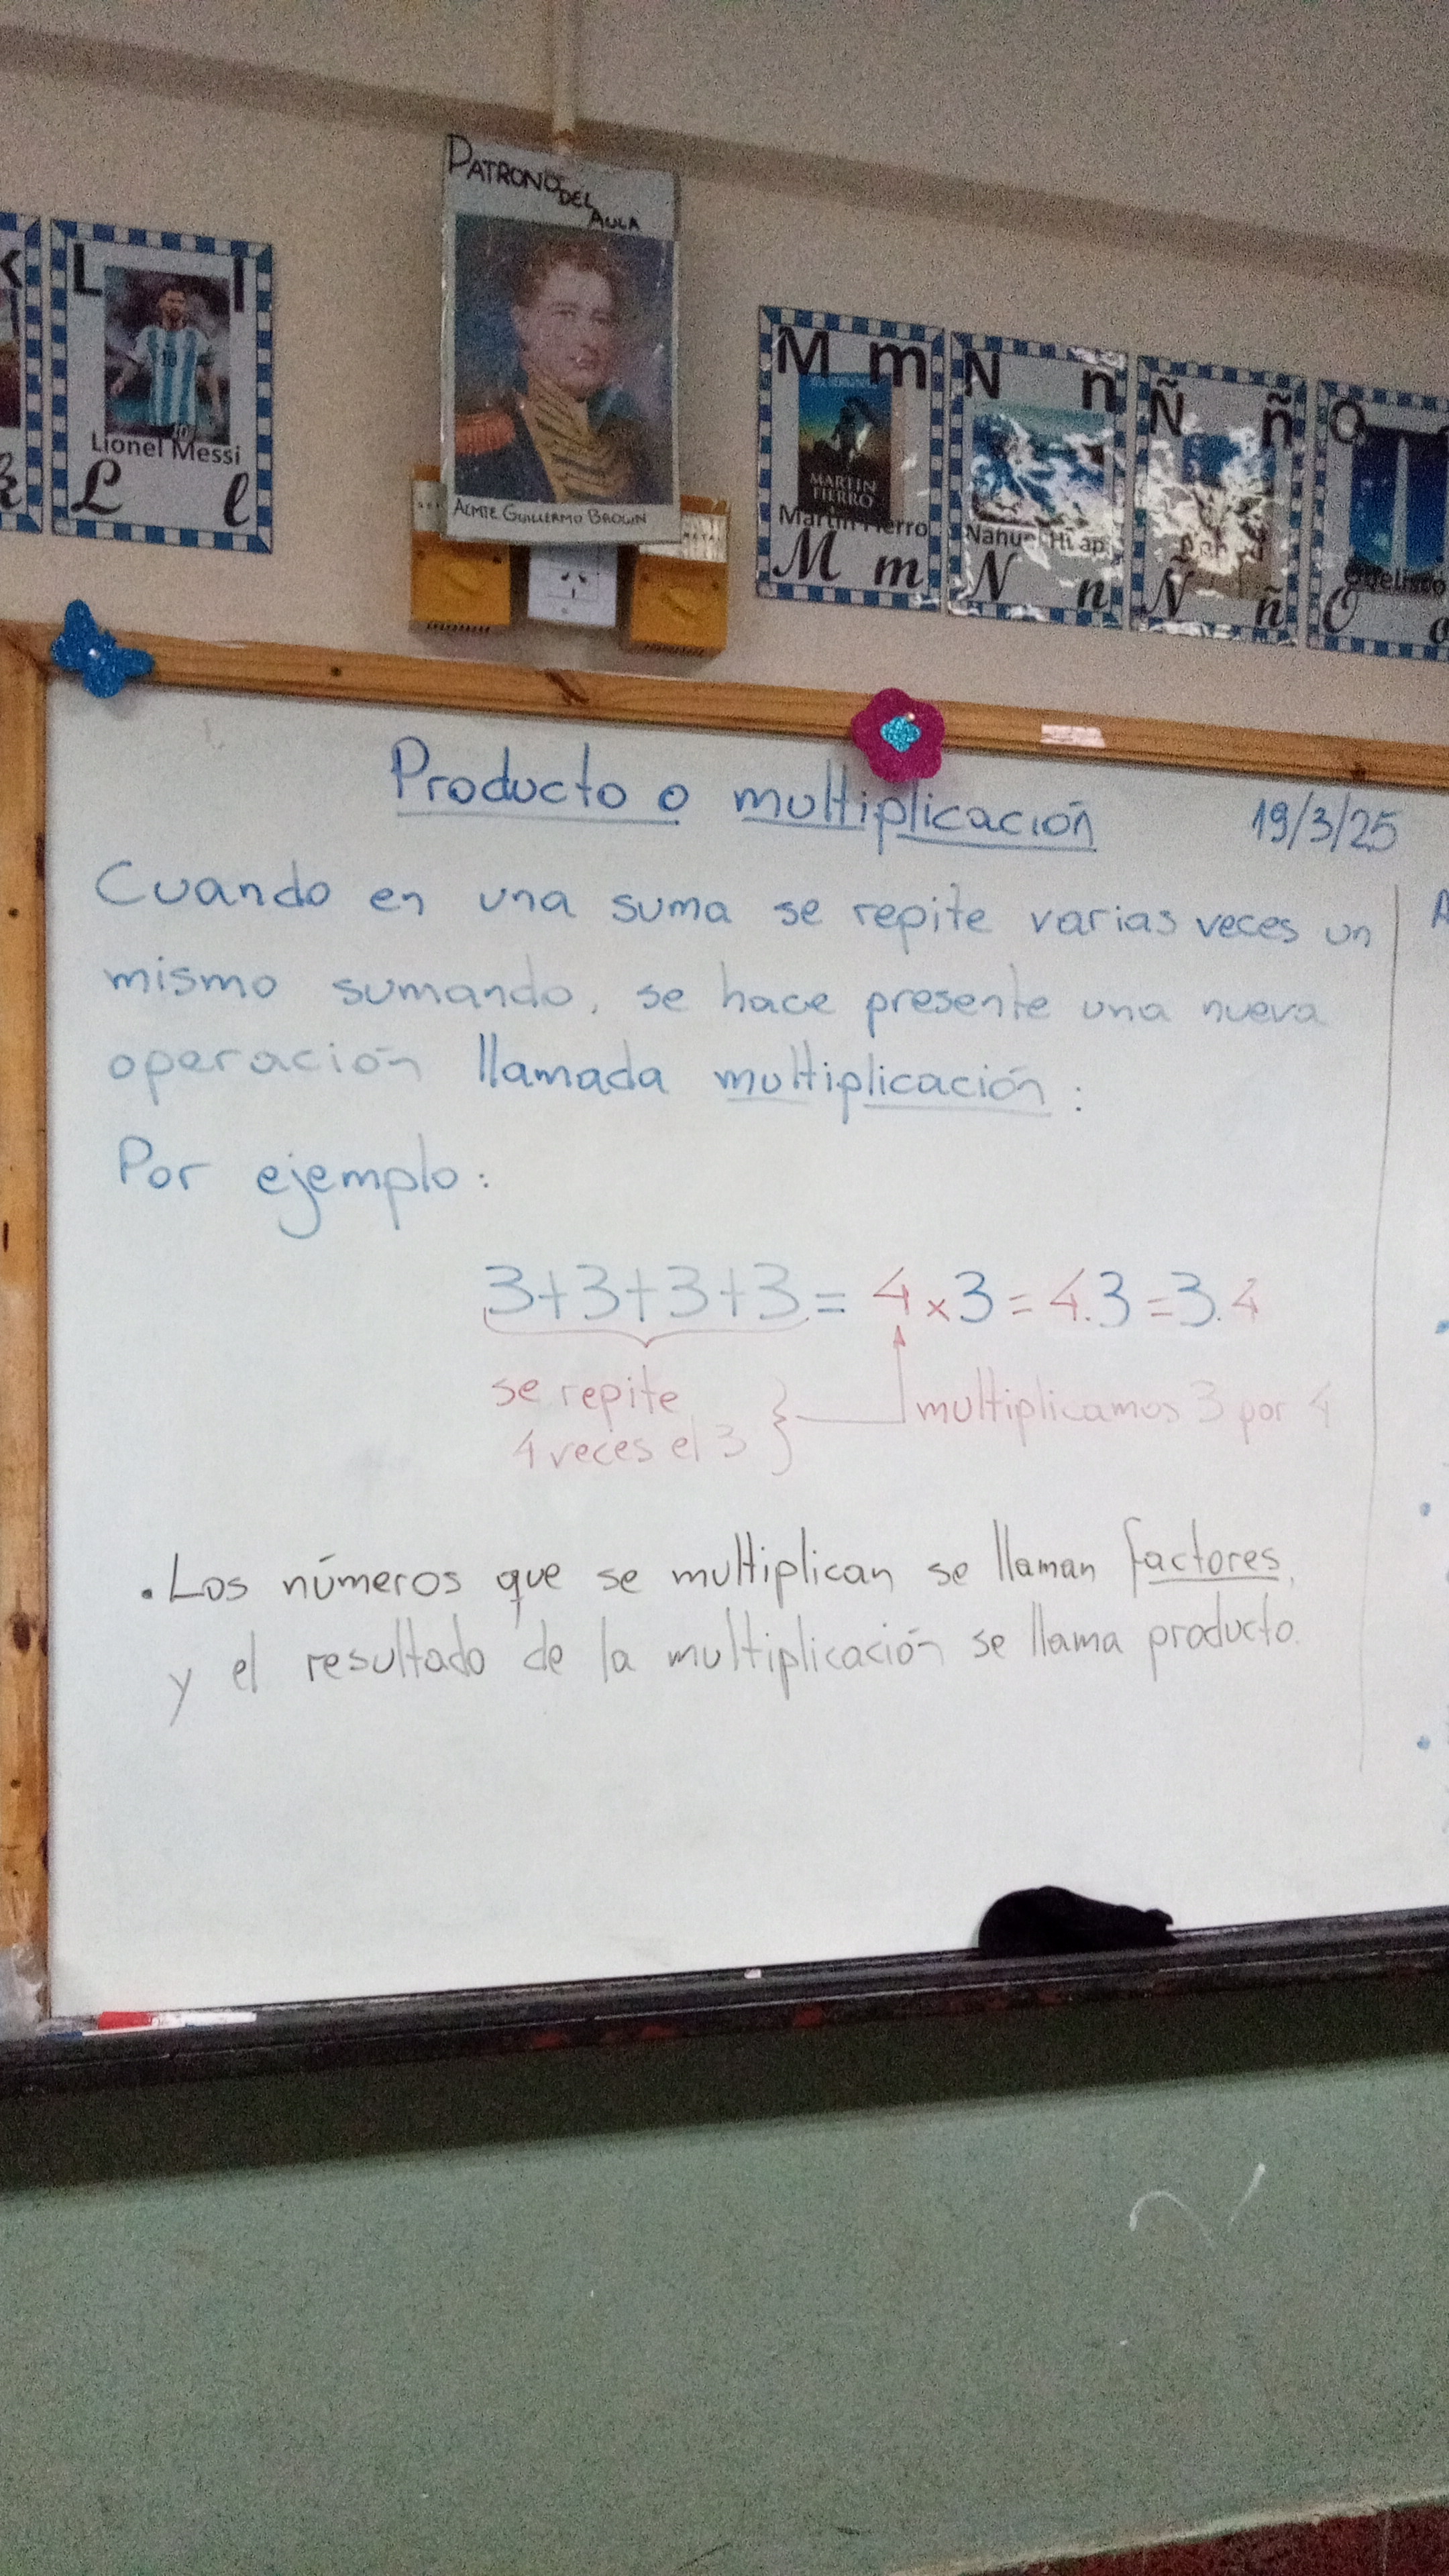 PATRONO DEL AULA
ALMTE. GUILLERMO BROWN
k
L l
10
Lionel Messi
L l
M m
MARTIN
FIERRO
Martín Fierro
M m
N n
N n
Ñ ñ
Ñ ñ
O
Obelisco
O o
Producto o multiplicación
19/3/25
Cuando en una suma se repite varias veces un
mismo sumando, se hace presente una nueva
operación llamada multiplicación:
Por ejemplo:
3+3+3+3 = 4 x 3 = 4.3 = 3.4
se repite
4 veces el 3
multiplicamos 3 por 4
. Los números que se multiplican se llaman factores,
y el resultado de la multiplicación se llama producto.
A